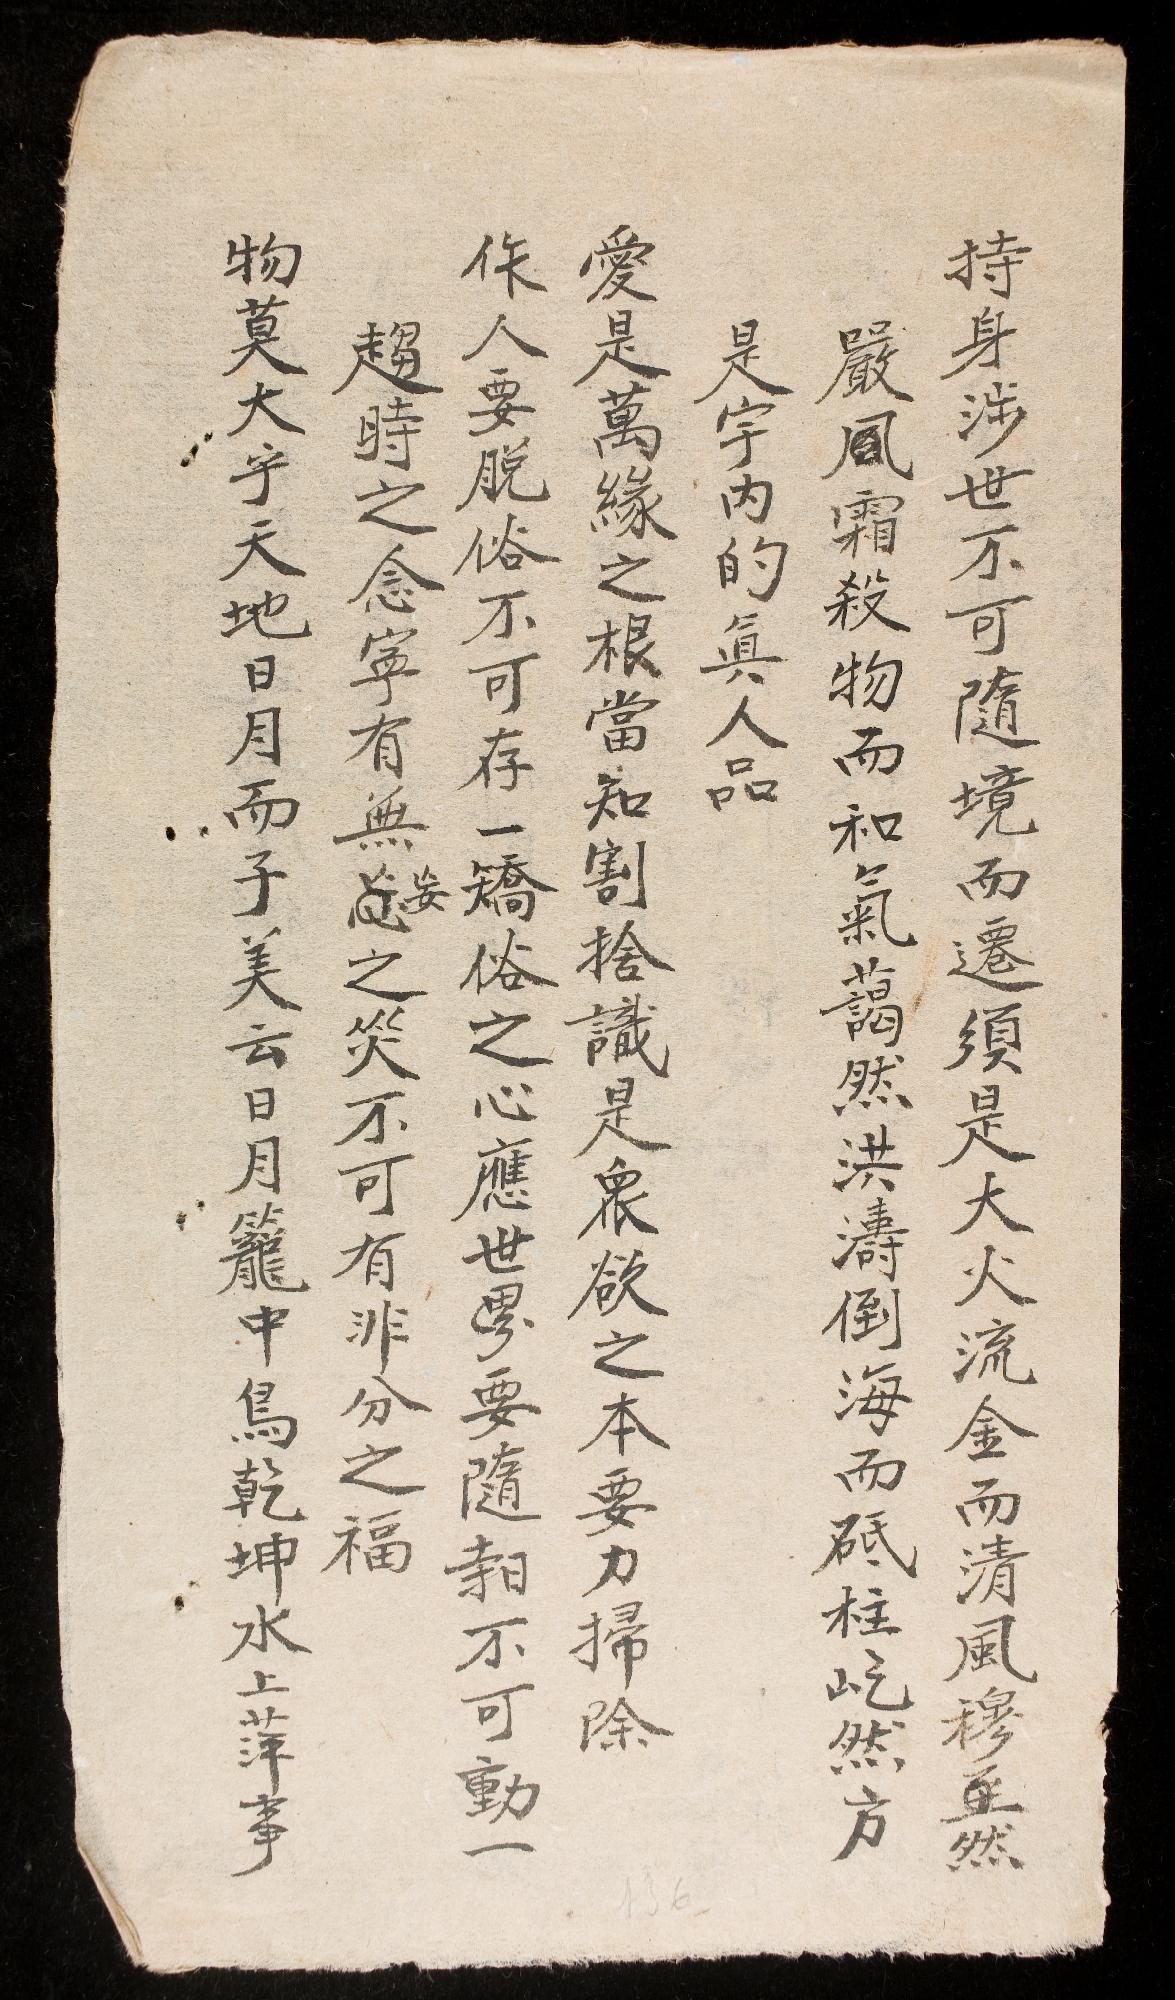 持身涉世不可隨境而遷須是大火流金而清風穆然
嚴風霜殺物而和氣藹然洪濤倒海而砥柱屹然方
是宇內的眞人品
愛是萬緣之根當知割捨識是衆欲之本要力掃除
作人要脫俗不可存一矯俗之心應世要隨時不可動一
趨時之念寧有無妄之災不可有非分之福
物莫大乎天地日月而子美云日月籠中鳥乾坤水上萍事
136